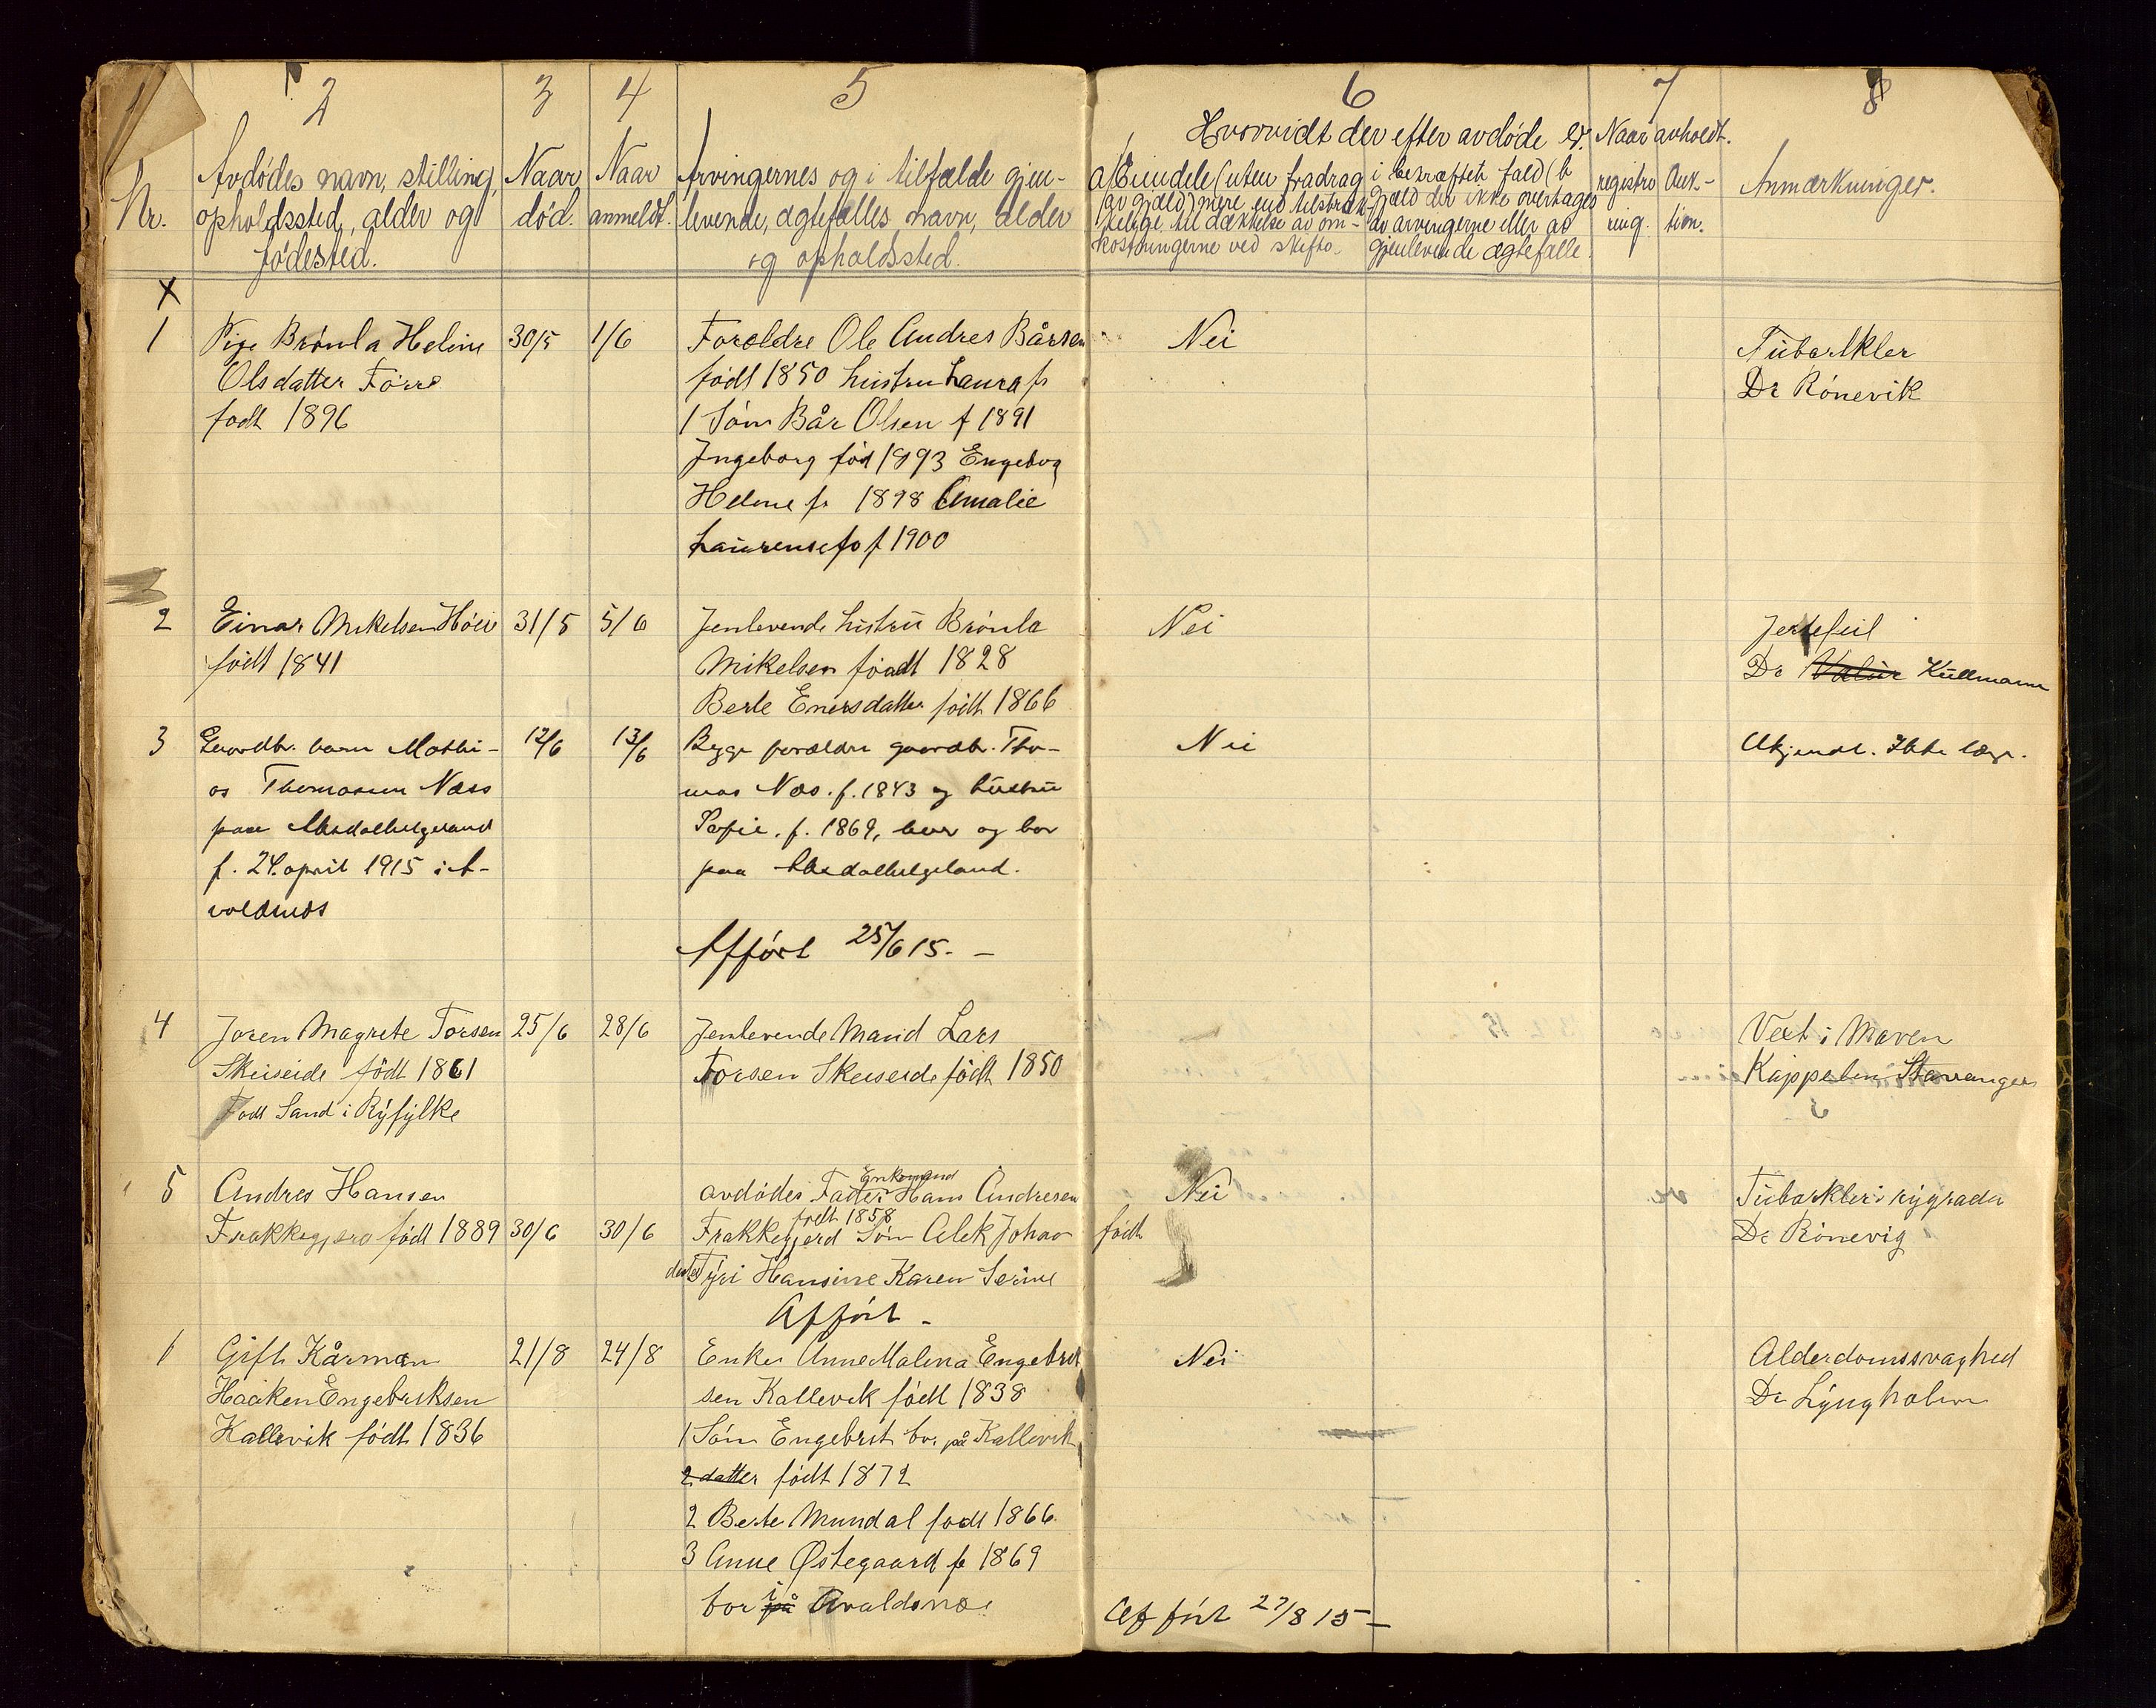 1 2 3 4 5 6 7 8
Nr.
Avdødes navn, stilling,
opholdssted, alder og
fødested.
Naar
død.
Naar
anmeldt.
Arvingernes og i tilfælde gjen-
levende, ægtefælles navn, alder
og opholdssted.
Hvorvidt der efter avdøde er.
a) Eiendele (uten fradrag
av gjæld) mere end tilstræk-
kelige til dækkelse av om-
kostningerne ved skifte.
i bekræftet fald (b
Gjæld der ikke overtages
av arvingerne eller av
gjenlevende ægtefælle.
Naar avholdt.
registre
ring.
Auk-
tion.
Anmærkninger.
X
1 Pige Brønla Heline 30/5 1/6 Foreldre Ole Andres Bårsen Nei Tubærkler
Olsdatter Førre født 1850 hustru Laura f Dr Rønevik
født 1896 1 Søn Bår Olsen f 1891
Ingeborg fød 1893 Engebog
Helene f. 1898 Amalie
Laurense fo f 1900
2 Einar Mikelsen Høie 31/5 5/6 Jenlevende hustru Brønla Nei Jertefeil
født 1841 Mikelsen føadt 1828 Dr Valur Kullmann
Berte Enersdatter født 1866
3 Gaardbr. barn Mathi- 12/6 13/6 Begge forældre gaardb. Tho- Nei Ukjendt. Ikke læge.
as Thomasen Næss mas Næs. f. 1843 og hustru
paa Aksdalhelgeland Sofie. f. 1869, lever og bor
f. 24. april 1915 i A- paa Aksdalhelgeland.
valdsnes
Afført 25/6 15. -
4 Joren Magrete Torsen 25/6 28/6 Jenlevende Mand Lars Vext i Maven
Skeiseide født 1861 Torsen Skeiseide født 1850 Kappelen Stavanger
Født Sand i Ryfylke
5 Andres Hansen avdødes Fader Enkemand Hans Andresen Nei Tubarkler i rygraden
Frakkegjerd født 1889 30/6 30/6 Frakkegjerd født 1858 Søn Alek Johan født Dr Rønevig
Tyri Hansine Karen Serine
Afført -
Gift Kårman 21/8 24/8 Enke Anne Malena Engebret Nei Alderdomssvaghed
Haaken Engebriksen sen Kallevik født 1838 Dr Lyngholm
Kallevik født 1836 1 Søn Engebrit bor på Kallevik
2 datter født 1872
2 Berte Mundal født 1866
3 Anne Østegaard f 1869
bor på i Avaldsnæs
Afført 27/8 15 -